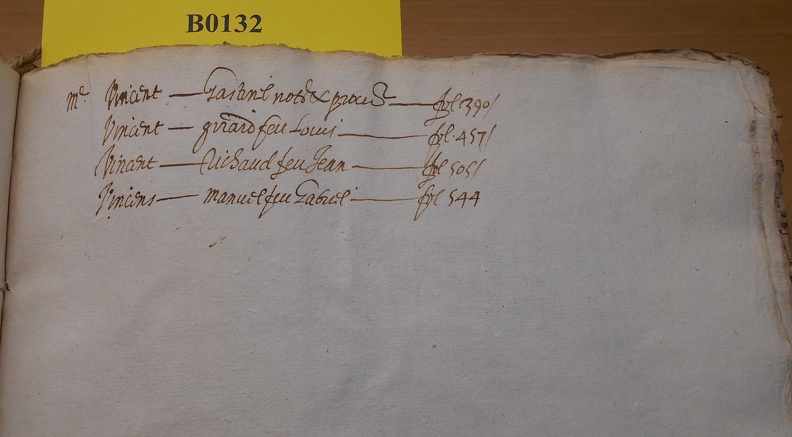 B0132
Me Vincent — Gastinel notre & procur — fol 390/
Vincent — girard feu Louis — fol 457/
Vincent — Richaud feu Jean — fol 505/
Vincens — manuel feu Gabriel — fol 544